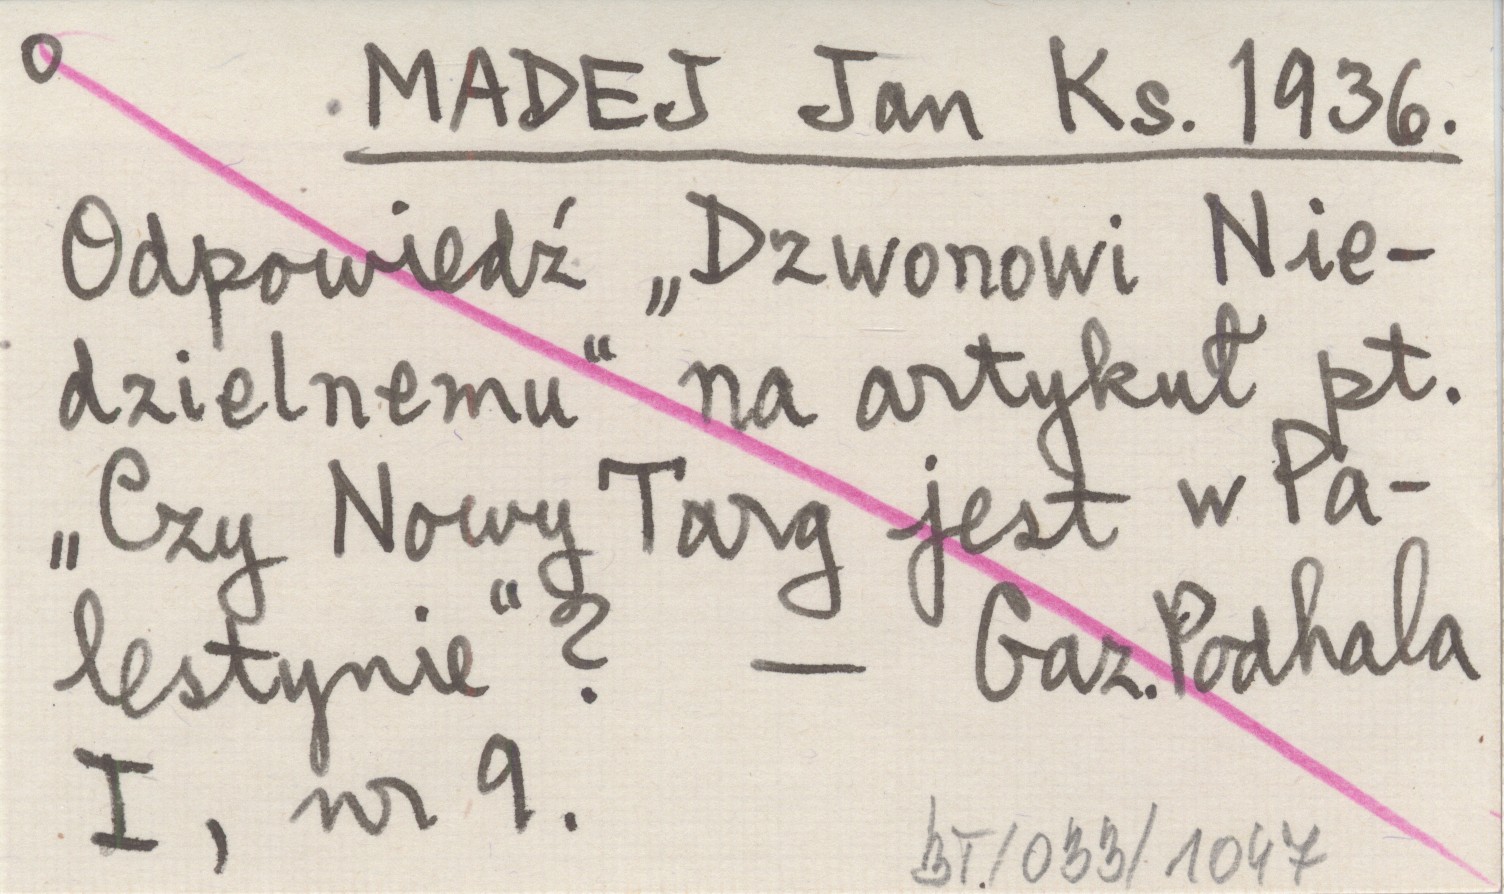 O MADEJ Jan Ks. 1936.
Odpowiedź „Dzwonowi Nie-
dzielnemu“ na artykuł pt.
„Czy Nowy Targ jest w Pa-
lestynie“? — Gaz. Podhala
I, nr 9.
BT./033/1047